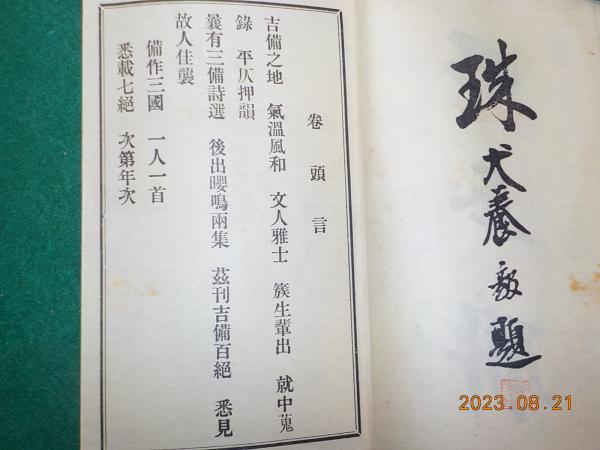 珠
犬養毅題
卷頭言
吉備之地　氣溫風和　文人雅士　簇生輩出　就中蒐
錄　平仄押韻
曩有三備詩選　後出嚶鳴兩集　茲刊吉備百絕　悉見
故人佳襲
備作三國　一人一首
悉載七絕　次第年次
2023.08.21